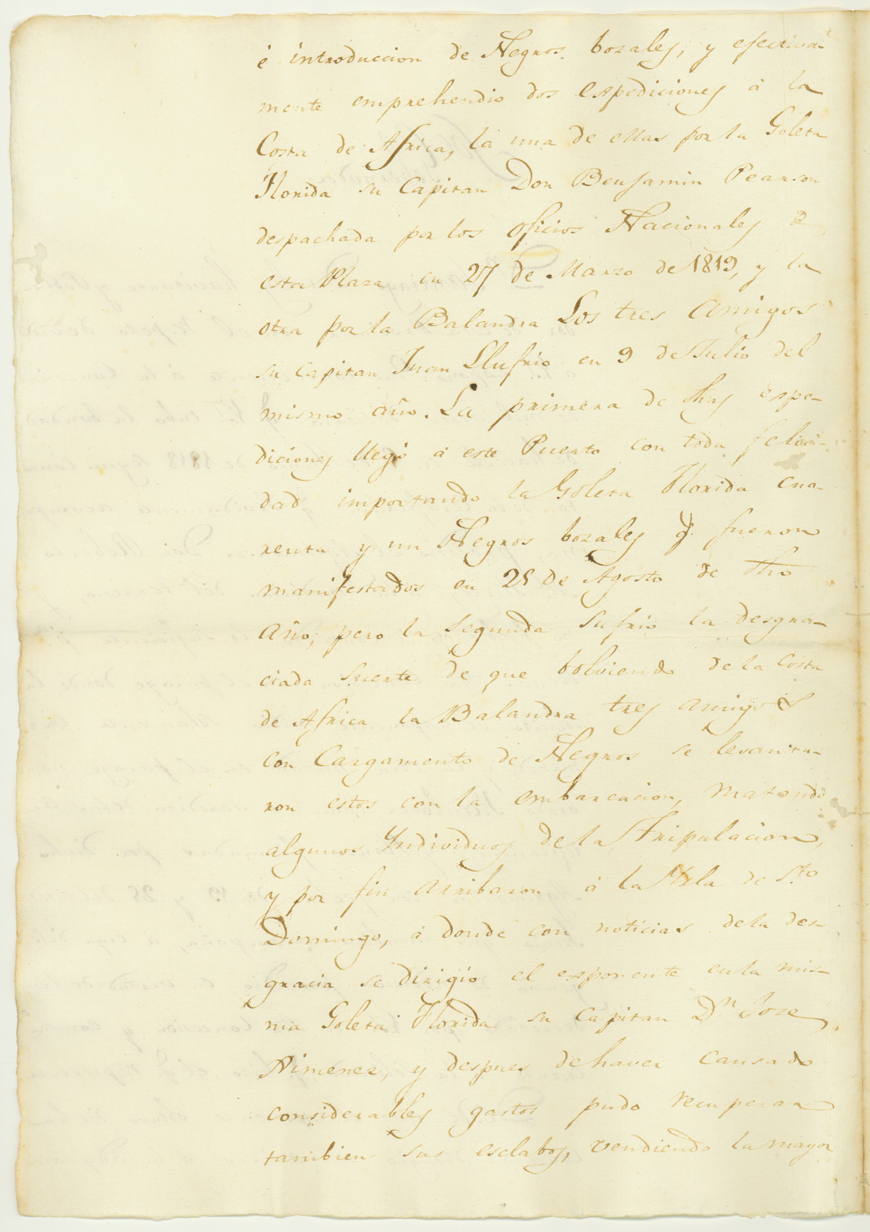 é introduccion de Negros bozales, y efectiva-
mente emprehendio dos expediciones á la
Costa de Africa, la una de ellas por la Goleta
Florida su Capitan Don Benjamin Pearson
despachada por los oficios Nacionales de
esta Plaza en 27 de Marzo de 1819, y la
otra por la Balandra Los tres Amigos
su Capitan Juan Llufrio en 9 de Julio del
mismo año. La primera de dhas expe-
diciones llegó á este Puerto con toda felici-
dad importando la Goleta Florida cua-
renta y un Negros bozales q. fueron
manifestados en 25 de Agosto de dho
año; pero la segunda sufrio la desgra-
ciada suerte de que bolviendo de la Costa
de Africa la Balandra tres Amigos
con Cargamento de Negros se levanta-
ron estos con la embarcacion, matando
algunos Yndividuos de la Tripulacion,
y por fin arribaron á la Ysla de Sto
Domingo, á donde con noticias de la des-
gracia se dirigio el exponente en la mis-
ma Goleta Florida su Capitan Dn Jose
Ximenez, y despues de haver causado
considerables gastos pudo recuperar
tambien sus esclabos, vendiendo la mayor